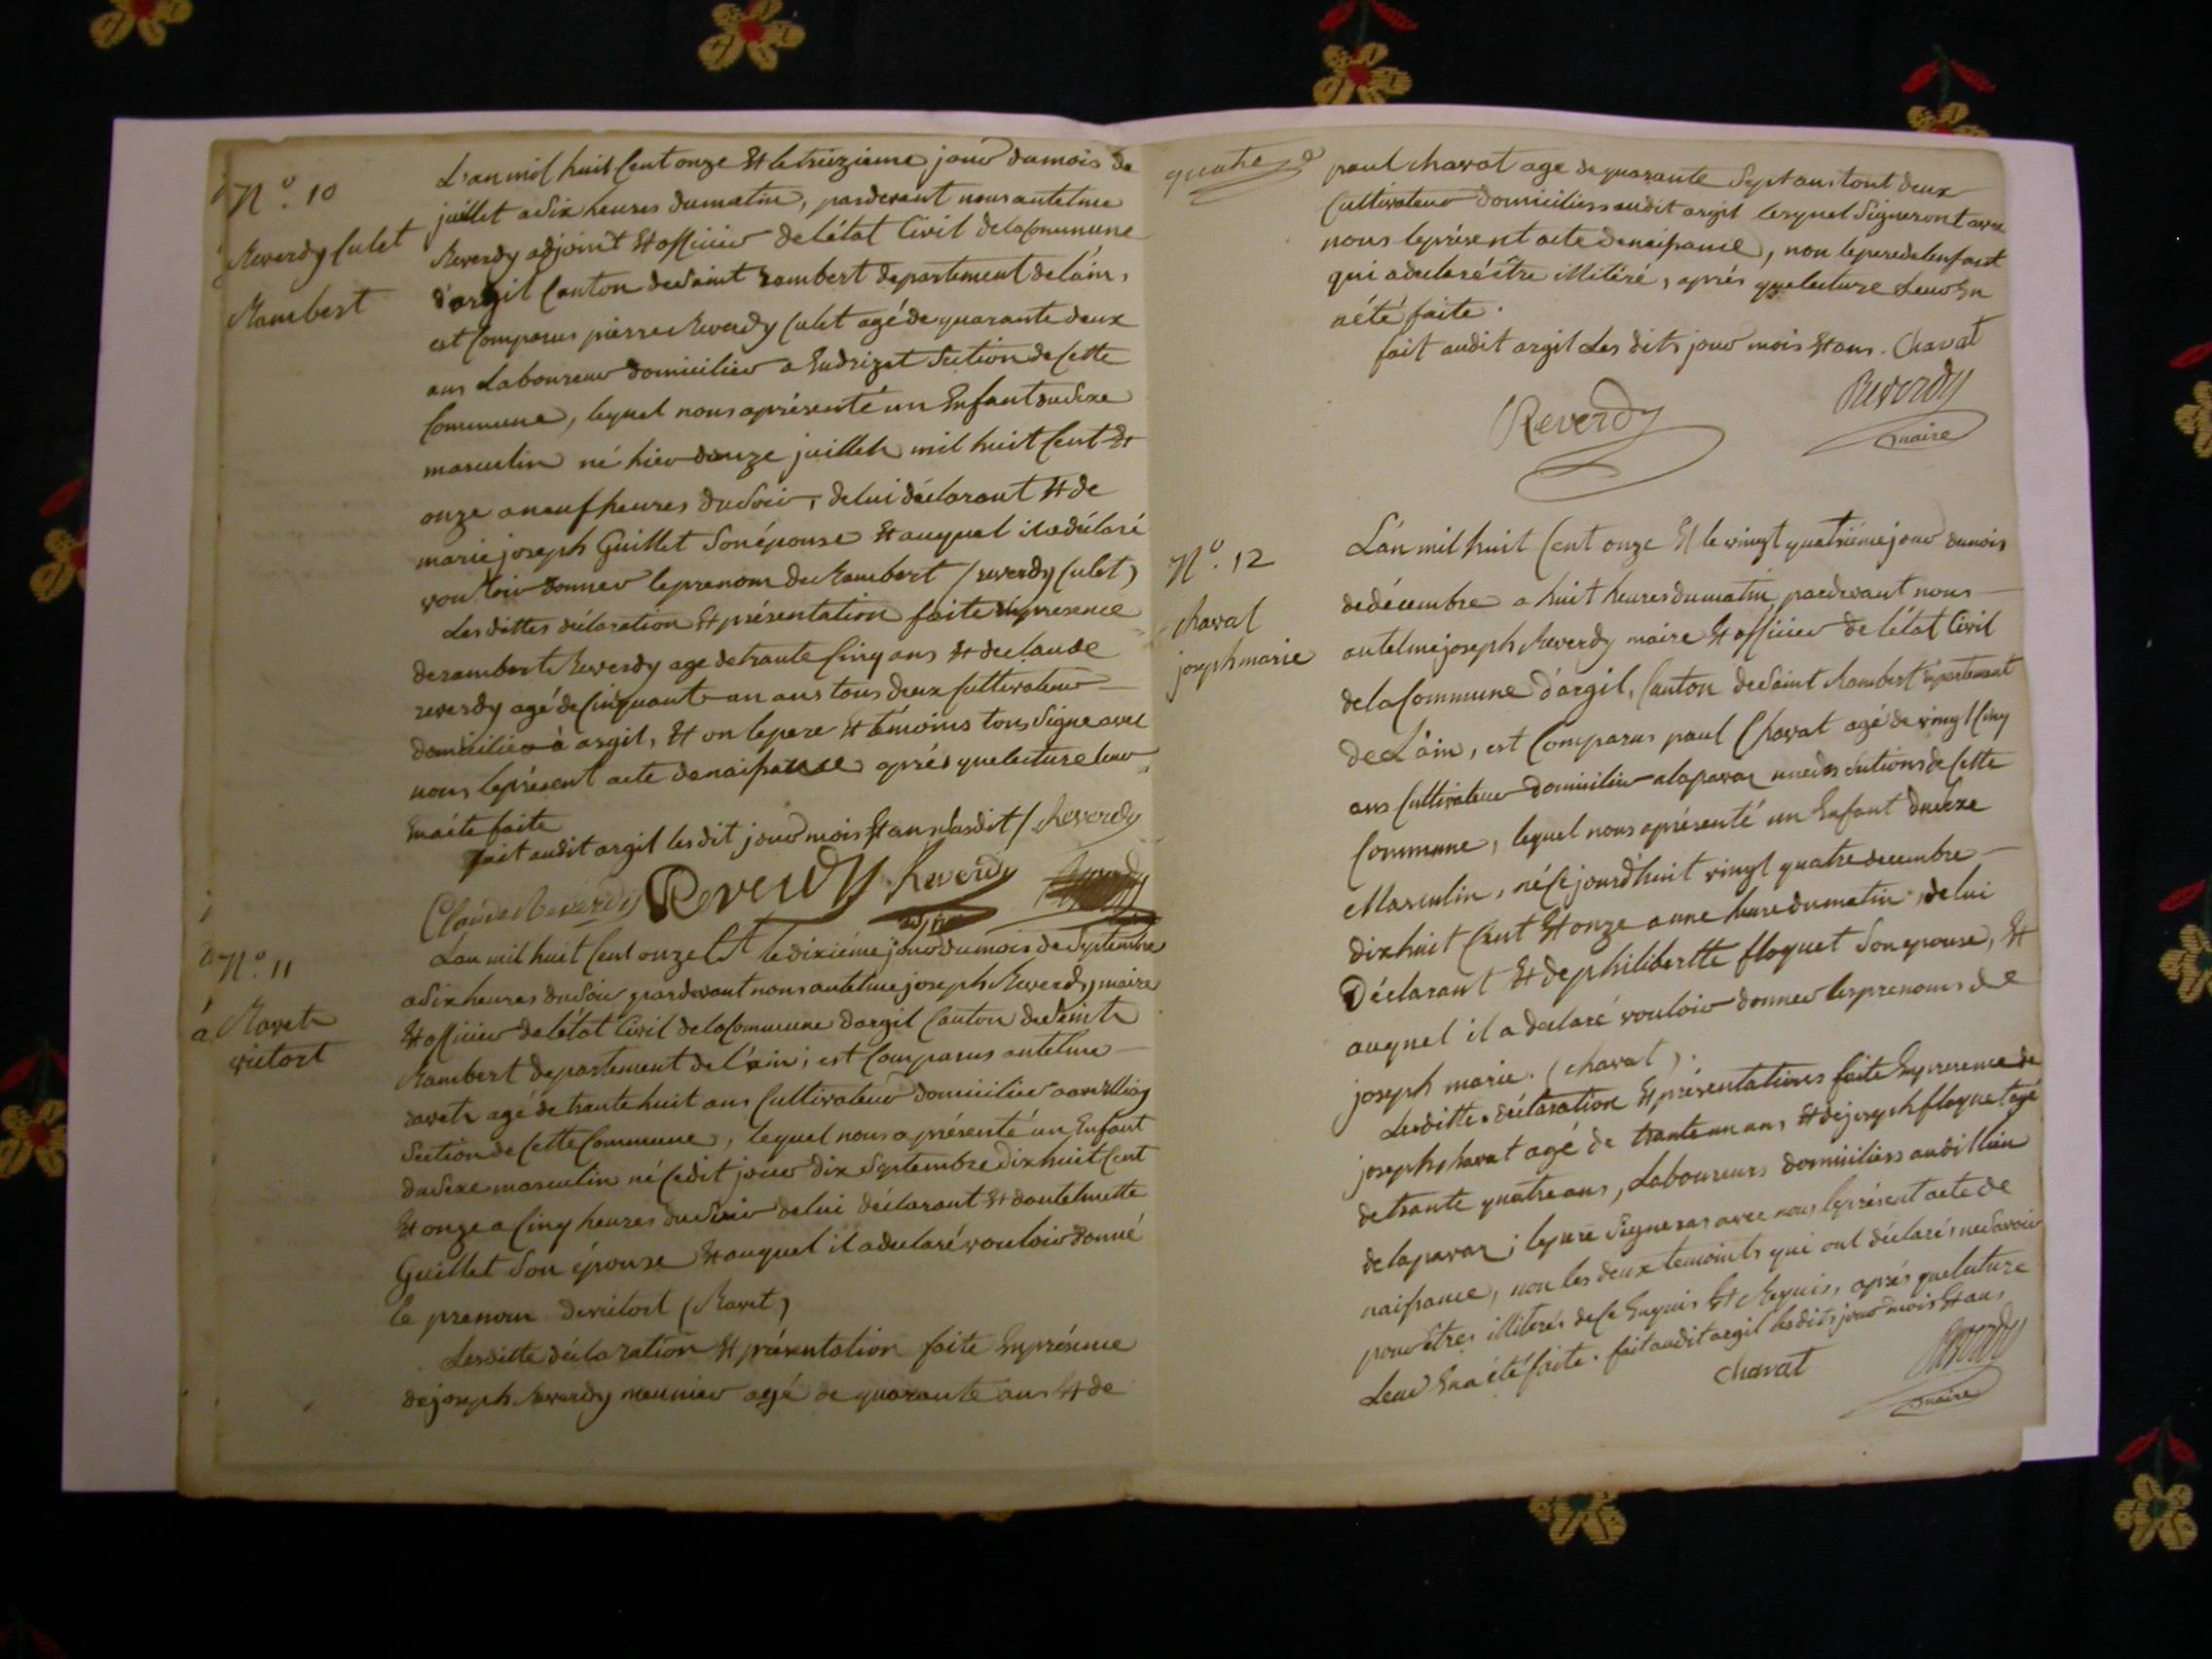 N.º 10
Reverdy Culet
Rambert
L'an mil huit Cent onze Et le treizieme jour du mois de
juillet a dix heures du matin, pardevant nous antelme
Reverdy adjoint Et officier de l'état Civil de la Commune
d'argil Canton de Saint rambert departement de l'ain,
est Comparus pierre Reverdy Culet agé de quarante deux
ans Laboureur domicilier a Section de Cette
Commune, lequel nous a présenté un Enfant du Sexe
masculin né hier douze juillet mil huit Cent Et
onze a neuf heures du Soir, de lui déclarant Et de
marie joseph Guillet Son épouse Et auquel il a déclaré
vouloir donner le prenom de Rambert (reverdy Culet)
Les dittes déclaration Et présentation faite En presence
de rambert Reverdy age de trante Cinq ans Et de Claude
reverdy agé de Cinquant un ans tous deux Cultivateur
domicilier à argil, Et on le pere Et témoins tous Signe avec
nous le présent acte de naissance après que lecture leur
En a été faite
fait audit argil les dit jour mois Et an Susdit / Reverdy
Claude Reverdy Reverdy Reverdy
adjoint
N.º 11
Ravet
victort
L'an mil huit Cent onze Et le dixiéme jour du mois de Septembre
a Six heures du Soir pardevant nous antelme joseph Reverdy maire
Et officier de l'état Civil de la Commune d'argil Canton de Saint
Rambert departement de l'ain, est Comparus antelme
ravet agé de trante huit ans Cultivateur domicilier
Section de Cette Commune, lequel nous a présenté un Enfant
du Sexe masculin né Cedit jour dix Septembre dix huit Cent
Et onze a Cinq heures du Soir de lui déclarant Et d'antelmette
Guillet Son épouse Et auquel il a declaré vouloir donné
le prenom de victort (Ravet)
Les ditte déclaration Et présentation faite En présence
de joseph Reverdy meunier agé de quarante ans Et de
quatre
paul chavat age de quarante Sept ans tout deux
Cultivateur domiciliers audit argil lesquel Signeront avec
nous le présent acte de naissance, non le pere de l'enfant
qui a déclaré être illitéré, après que lecture Leur En
a été faite.
fait audit argil Les dits jour mois Et ans. Chavat
Reverdy
Reverdy
maire
N.º 12
chavat
joseph marie
L'an mil huit Cent onze Et le vingt quatriéme jour du mois
de décembre a huit heures du matin pardevant nous
antelme joseph Reverdy maire Et officier de l'état Civil
de la Commune d'argil, Canton de Saint Rambert département
de L'ain, est Comparus paul Chavat agé de vingt Cinq
ans Cultivateur domicilier a laparaz une des Sections de Cette
Commune, lequel nous a présenté un Enfant du Sexe
Masculin, né Ce jourd'huit vingt quatre decembre
dix huit Cent Et onze a une heure du matin, de lui
Déclarant Et de philibertte floquet Son epouse, Et
auquel il a declaré vouloir donner les prenoms de
joseph marie. (chavat).
Les ditte déclaration Et présentations faite En presence de
joseph chavat agé de trante un ans Et de joseph floquet agé
de trante quatre ans, Laboureurs domiciliers audit lieu
de laparaz; le pere Signeras avec nous le présent acte de
naissance, non les deux temoints qui ont déclarés ne Savoir
pour êtres illiterés de Ce Enquis Et Requis, après que lecture
Leur En a été faite. fait audit argil les dits jour mois Et ans
chavat
Reverdy
maire